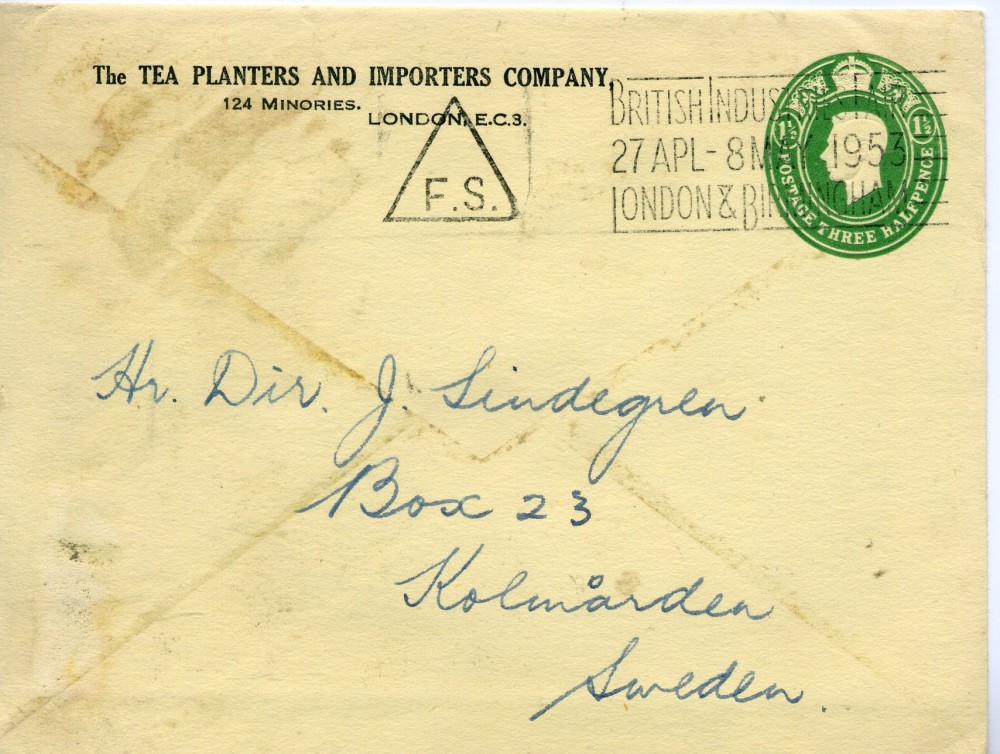 The TEA PLANTERS AND IMPORTERS COMPANY,
124 MINORIES.
LONDON, E.C.3.
F.S.
BRITISH INDUSTRIES FAIR
27 APL - 8 MAY 1953
LONDON & BIRMINGHAM
1½D 1½D
POSTAGE THREE HALFPENCE
Hr. Dir. J. Lindegren
Box 23
Kolmården
Sweden.